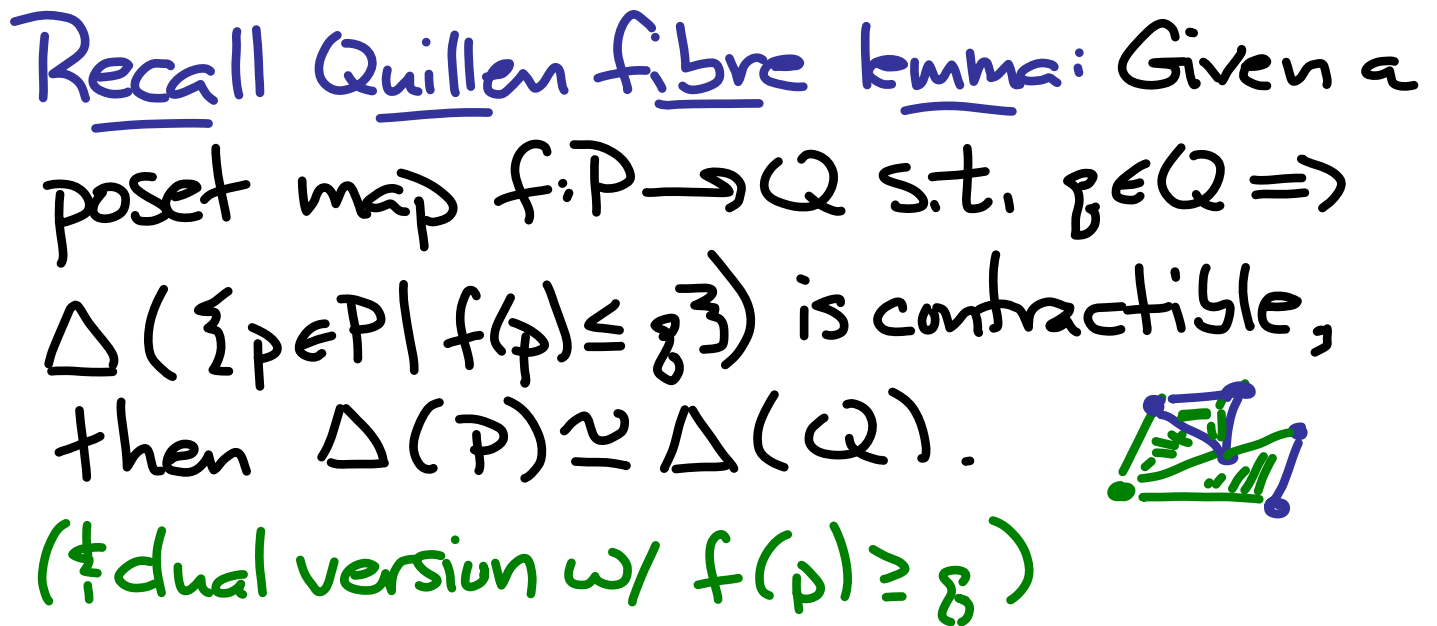 Recall Quillen fibre lemma: Given a
poset map f: P → Q s.t. q ∈ Q ⇒
Δ({p ∈ P | f(p) ≤ q}) is contractible,
then Δ(P) ≃ Δ(Q).
(& dual version w/ f(p) ≥ q)